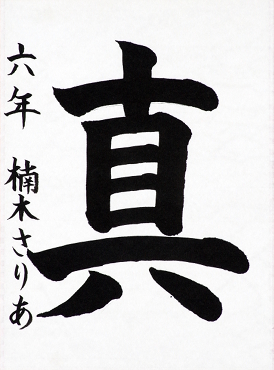 真
六年 楠木さりあ